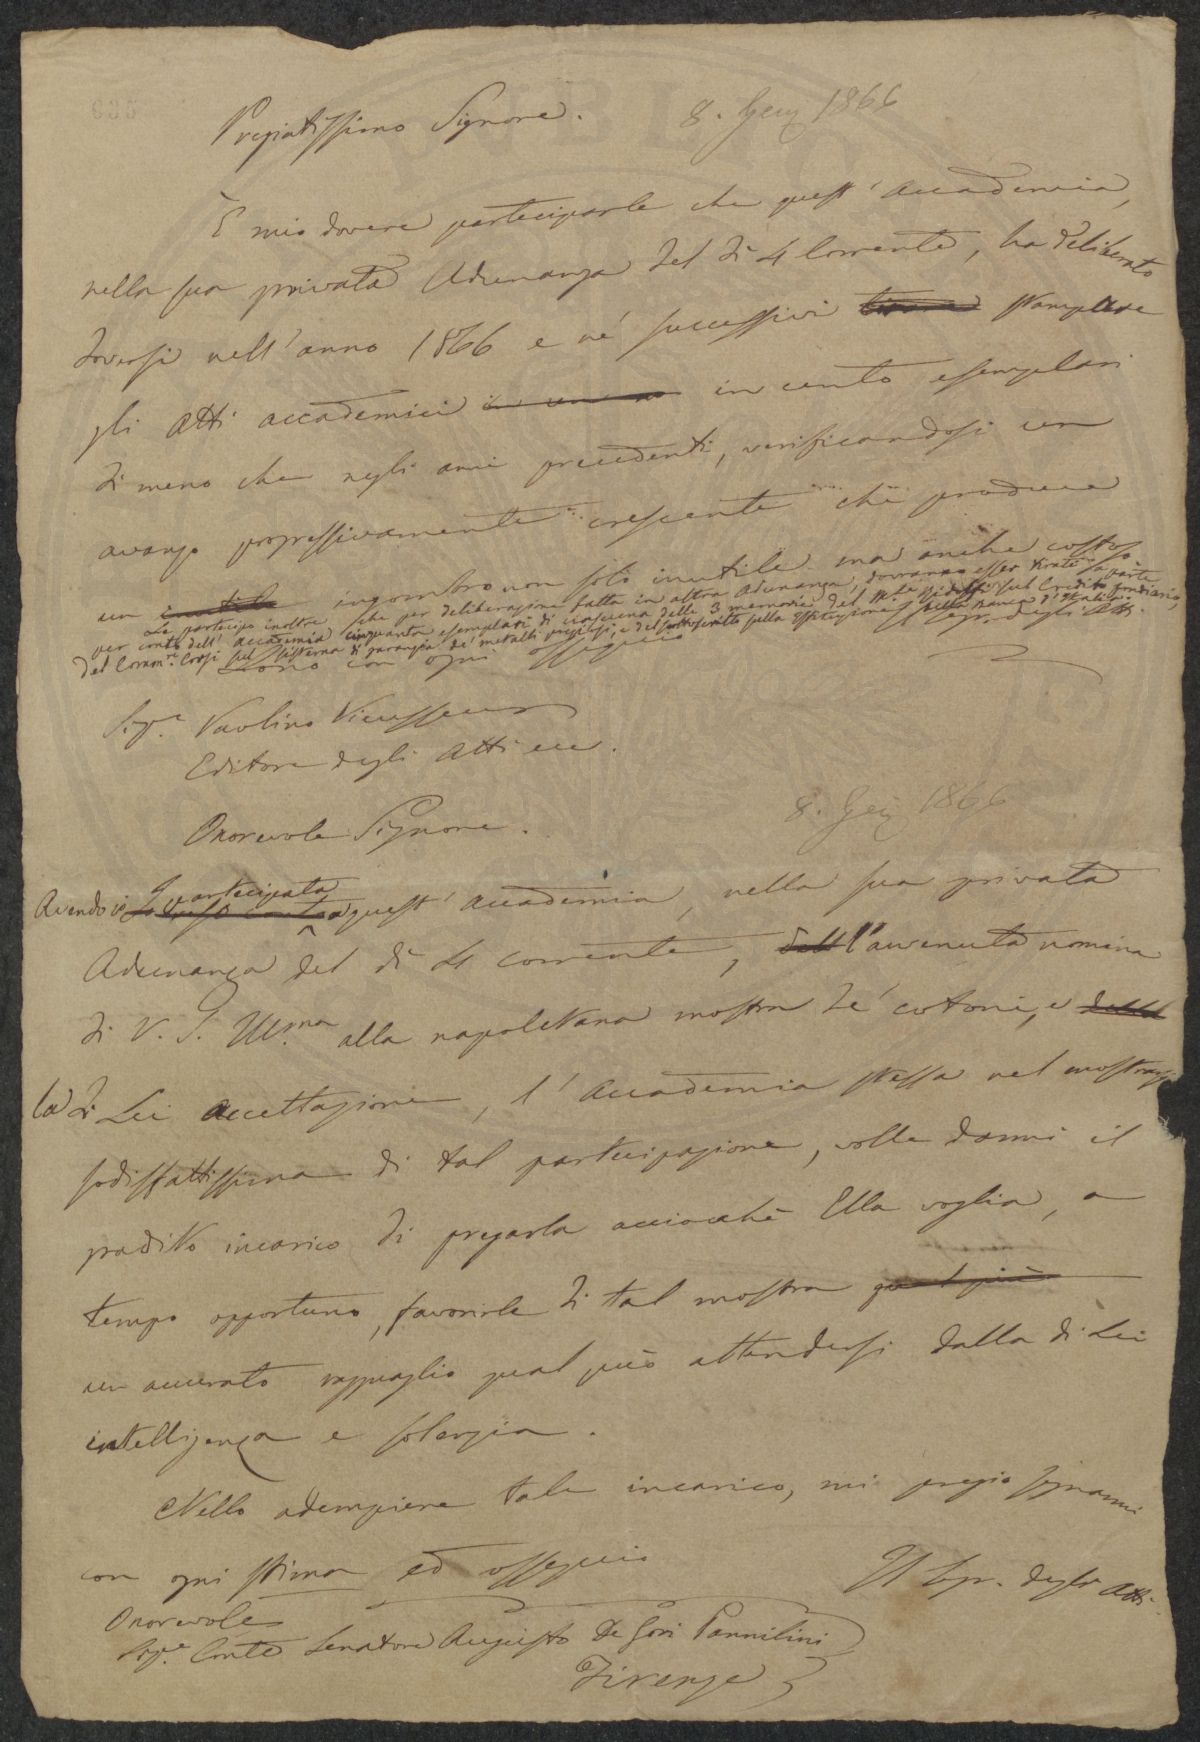 Pregiatissimo Signore. 8. Gen 1866
È mio dovere parteciparle che quest' Accademia,
nella sua privata Adunanza del dì 4 Corrente, ha deliberato
doversi nell' anno 1866 e ne' successivi stampare
gli Atti accademici in cento esemplari
di meno che negli anni precedenti, verificandosi un
avanzo progressivamente crescente che produce
un inutile ingombro non solo inutile ma anche costoso
Le partecipo inoltre che per deliberazione fatta in altra Adunanza, dovranno esser tirate a parte
per conto dell' Accademia cinquanta esemplari di ciascuna delle 3 memorie del M.se Ridolfi sul Credito fondiario,
del Comm.re Corsi sul sistema di garanzia de' metalli preziosi, e del sottoscritto sulla istituzione della Banca d'Italia.
Sono con ogni ossequio Il Segr. degli Atti.
Sig.r Paolino Vieusseux
Editore degli Atti ecc.
Onorevole Signore. 8. Gen 1866
Avendo io partecipata a quest' Accademia, nella sua privata
Adunanza del dì 4 corrente, dell' l'avvenuta nomina
di V. S. Ill.ma alla napoletana mostra de' cotoni, e della
la di Lei accettazione, l' Accademia stessa nel mostrarsi
sodisfattissima di tal partecipazione, volle darmi il
gradito incarico di pregarla acciocchè Ella voglia, a
tempo opportuno, favorirle di tal mostra qual può
un accurato ragguaglio qual può attendersi dalla di Lei
intelligenza e solerzia.
Nello adempiere tale incarico, mi pregio segnarmi
con ogni stima ed ossequio
Il Segr. degli Atti.
Onorevole
Sig.r Conte Senatore Augusto De Gori Pannilini
Firenze